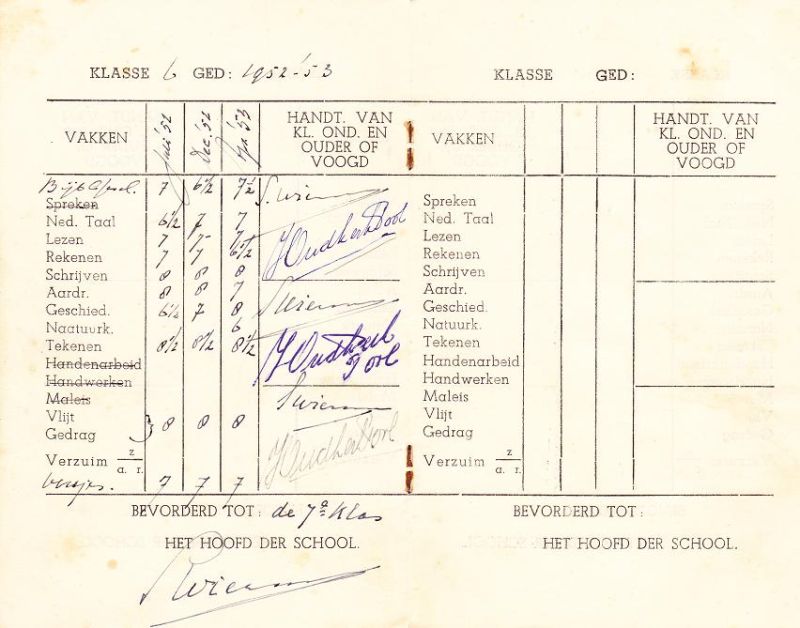 KLASSE 6 GED: 1952-'53
VAKKEN Juli '52 Dec. '52 '53 HANDT. VAN KL. OND. EN OUDER OF VOOGD
7 6½ 7½ S. Wiersma
Spreken
Ned. Taal 6½ 7 7
Lezen 7 7 7
Rekenen 7 7 6½
Schrijven 8 8 8
Aardr. 8 8 7
Geschied. 6½ 7 8
Naatuurk. 6
Tekenen 8½ 8½ 8½
Handenarbeid
Handwerken
Maleis
Vlijt
Gedrag 8 8 8
Verzuim z / a. r.
versjes. 7 7 7
BEVORDERD TOT: de 7e Klas
HET HOOFD DER SCHOOL.
KLASSE GED:
VAKKEN HANDT. VAN KL. OND. EN OUDER OF VOOGD
Spreken
Ned. Taal
Lezen
Rekenen
Schrijven
Aardr.
Geschied.
Natuurk.
Tekenen
Handenarbeid
Handwerken
Maleis
Vlijt
Gedrag
Verzuim z / a. r.
BEVORDERD TOT:
HET HOOFD DER SCHOOL.